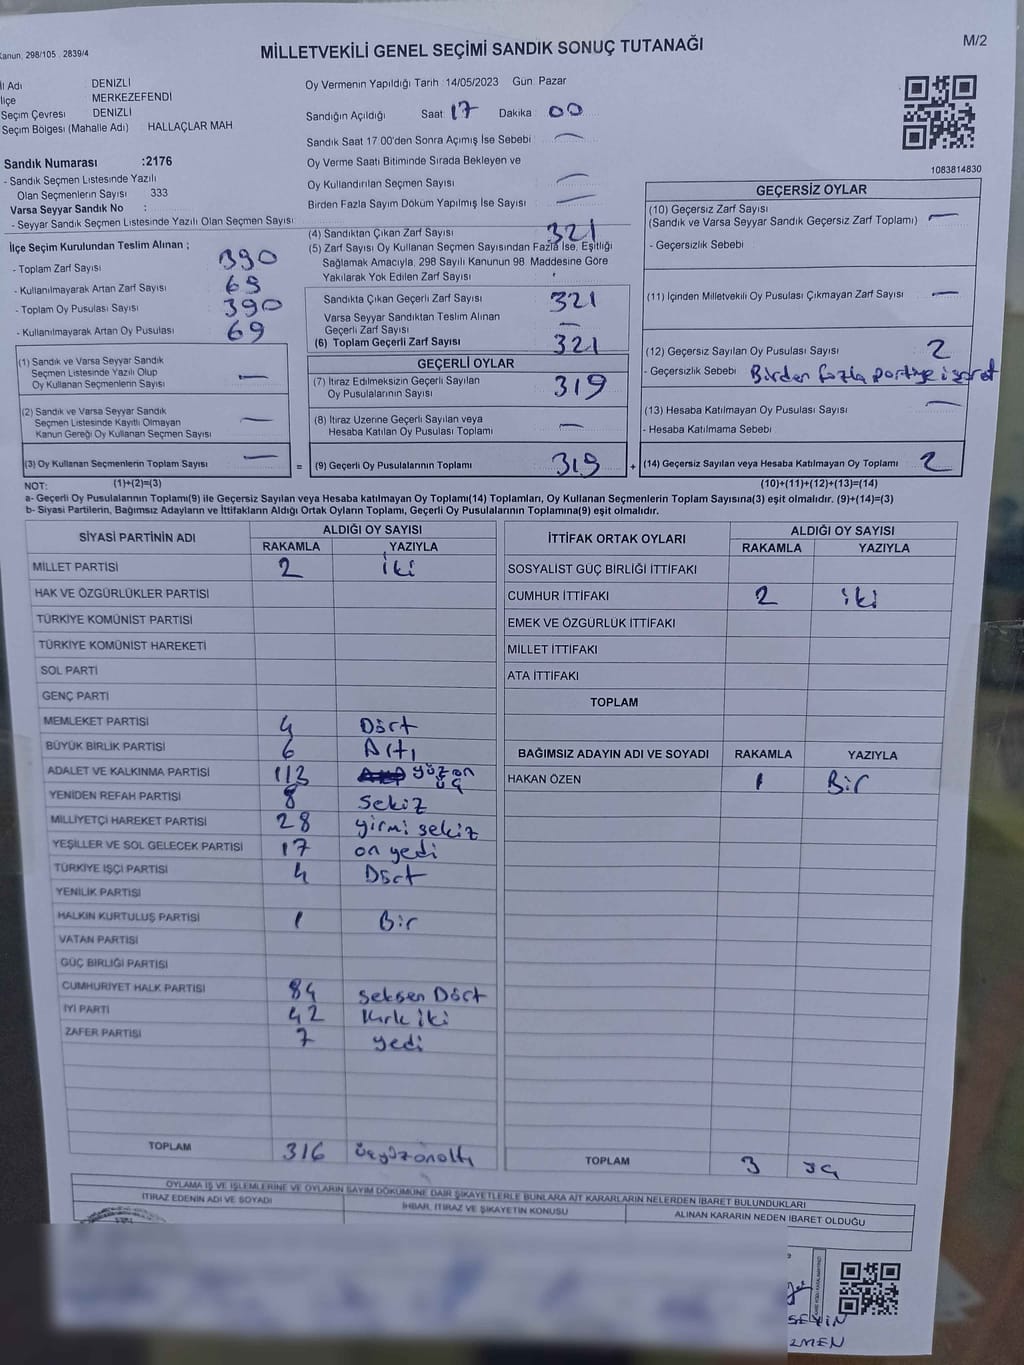 Kanun, 298/105 . 2839/4
MİLLETVEKİLİ GENEL SEÇİMİ SANDIK SONUÇ TUTANAĞI
M/2
İl Adı DENİZLİ
İlçe MERKEZEFENDİ
Seçim Çevresi DENİZLİ
Seçim Bölgesi (Mahalle Adı) HALLAÇLAR MAH
Oy Vermenin Yapıldığı Tarih 14/05/2023 Gün: Pazar
Sandığın Açıldığı Saat: 17 Dakika 00
Sandık Saat 17 00'den Sonra Açımış İse Sebebi —
Oy Verme Saati Bitiminde Sırada Bekleyen ve
Oy Kullandırılan Seçmen Sayısı —
Birden Fazla Sayım Döküm Yapılmış İse Sayısı —
1083814830
Sandık Numarası :2176
- Sandık Seçmen Listesinde Yazılı
Olan Seçmenlerin Sayısı 333
Varsa Seyyar Sandık No :
- Seyyar Sandık Seçmen Listesinde Yazılı Olan Seçmen Sayısı:
İlçe Seçim Kurulundan Teslim Alınan ;
- Toplam Zarf Sayısı 390
- Kullanılmayarak Artan Zarf Sayısı 69
- Toplam Oy Pusulası Sayısı 390
- Kullanılmayarak Artan Oy Pusulası 69
(1) Sandık ve Varsa Seyyar Sandık
Seçmen Listesinde Yazılı Olup
Oy Kullanan Seçmenlerin Sayısı —
(2) Sandık ve Varsa Seyyar Sandık
Seçmen Listesinde Kayıtlı Olmayan
Kanun Gereği Oy Kullanan Seçmen Sayısı —
(3) Oy Kullanan Seçmenlerin Toplam Sayısı —
(4) Sandıktan Çıkan Zarf Sayısı 321
(5) Zarf Sayısı Oy Kullanan Seçmen Sayısından Fazla İse, Eşitliği
Sağlamak Amacıyla, 298 Sayılı Kanunun 98. Maddesine Göre
Yakılarak Yok Edilen Zarf Sayısı
Sandıkta Çıkan Geçerli Zarf Sayısı 321
Varsa Seyyar Sandıktan Teslim Alınan
Geçerli Zarf Sayısı —
(6) Toplam Geçerli Zarf Sayısı 321
GEÇERLİ OYLAR
(7) İtiraz Edilmeksizin Geçerli Sayılan
Oy Pusulalarının Sayısı 319
(8) İtiraz Üzerine Geçerli Sayılan veya
Hesaba Katılan Oy Pusulası Toplamı —
= (9) Geçerli Oy Pusulalarının Toplamı 319
GEÇERSİZ OYLAR
(10) Geçersiz Zarf Sayısı
(Sandık ve Varsa Seyyar Sandık Geçersiz Zarf Toplamı) —
- Geçersizlik Sebebi
(11) İçinden Milletvekili Oy Pusulası Çıkmayan Zarf Sayısı —
(12) Geçersiz Sayılan Oy Pusulası Sayısı 2
- Geçersizlik Sebebi Birden fazla partiye işaret
(13) Hesaba Katılmayan Oy Pusulası Sayısı —
- Hesaba Katılmama Sebebi
+ (14) Geçersiz Sayılan veya Hesaba Katılmayan Oy Toplamı 2
NOT: (1)+(2)=(3)
(10)+(11)+(12)+(13)=(14)
a- Geçerli Oy Pusulalarının Toplamı(9) ile Geçersiz Sayılan veya Hesaba katılmayan Oy Toplamı(14) Toplamları, Oy Kullanan Seçmenlerin Toplam Sayısına(3) eşit olmalıdır. (9)+(14)=(3)
b- Siyasi Partilerin, Bağımsız Adayların ve İttifakların Aldığı Ortak Oyların Toplamı, Geçerli Oy Pusulalarının Toplamına(9) eşit olmalıdır.
SİYASİ PARTİNİN ADI ALDIĞI OY SAYISI
RAKAMLA YAZIYLA
MİLLET PARTİSİ 2 iki
HAK VE ÖZGÜRLÜKLER PARTİSİ
TÜRKİYE KOMÜNİST PARTİSİ
TÜRKİYE KOMÜNİST HAREKETİ
SOL PARTİ
GENÇ PARTİ
MEMLEKET PARTİSİ 4 Dört
BÜYÜK BİRLİK PARTİSİ 6 Altı
ADALET VE KALKINMA PARTİSİ 113 yüz on üç
YENİDEN REFAH PARTİSİ 8 Sekiz
MİLLİYETÇİ HAREKET PARTİSİ 28 yirmi sekiz
YEŞİLLER VE SOL GELECEK PARTİSİ 17 on yedi
TÜRKİYE İŞÇİ PARTİSİ 4 Dört
YENİLİK PARTİSİ
HALKIN KURTULUŞ PARTİSİ 1 Bir
VATAN PARTİSİ
GÜÇ BİRLİĞİ PARTİSİ
CUMHURİYET HALK PARTİSİ 84 Seksen Dört
İYİ PARTİ 42 Kırk iki
ZAFER PARTİSİ 7 yedi
TOPLAM 316 üçyüzonaltı
İTTİFAK ORTAK OYLARI ALDIĞI OY SAYISI
RAKAMLA YAZIYLA
SOSYALİST GÜÇ BİRLİĞİ İTTİFAKI
CUMHUR İTTİFAKI 2 iki
EMEK VE ÖZGÜRLÜK İTTİFAKI
MİLLET İTTİFAKI
ATA İTTİFAKI
TOPLAM
BAĞIMSIZ ADAYIN ADI VE SOYADI RAKAMLA YAZIYLA
HAKAN ÖZEN 1 Bir
TOPLAM 3 üç
OYLAMA İŞ VE İŞLEMLERİNE VE OYLARIN SAYIM DÖKÜMÜNE DAİR ŞİKAYETLERLE BUNLARA AİT KARARLARIN NELERDEN İBARET BULUNDUKLARI
İTİRAZ EDENİN ADI VE SOYADI İHBAR, İTİRAZ VE ŞİKAYETİN KONUSU ALINAN KARARIN NEDEN İBARET OLDUĞU